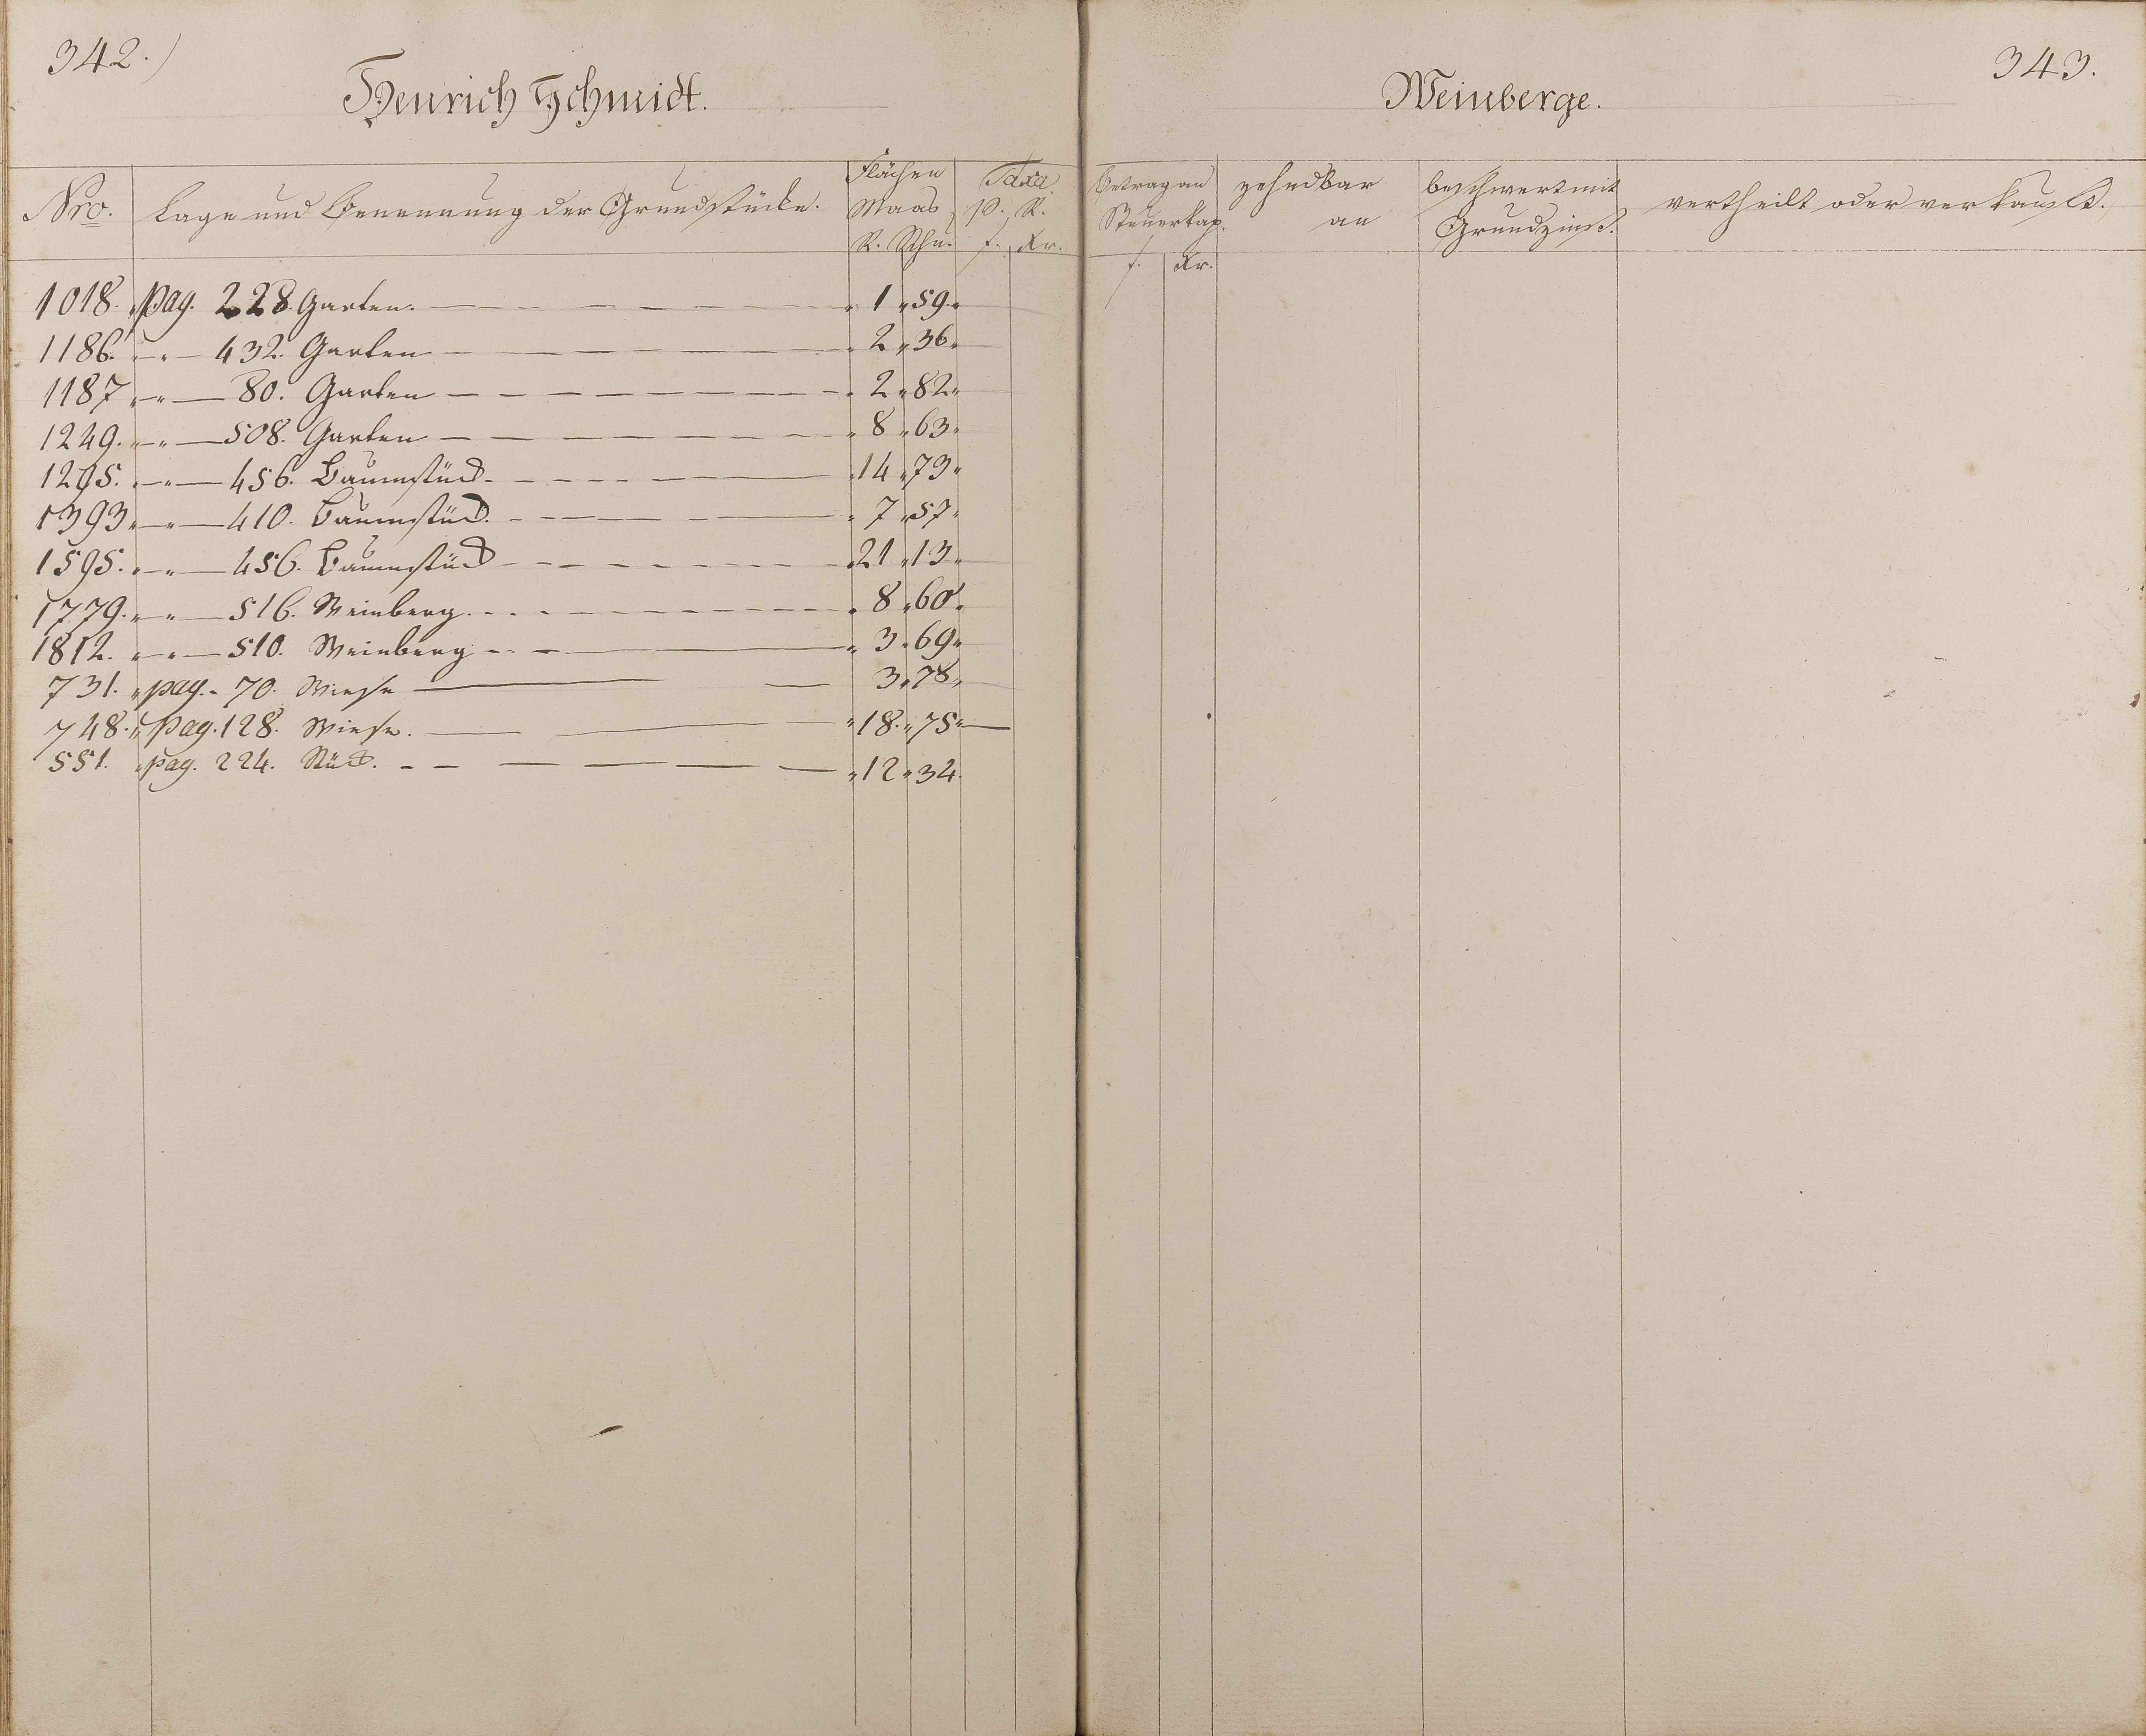 342.)
Henrich Schmidt.
Nro. Lage und Benennung der Grundstücke. Flächen Maas R. Schu. Taxa. p. R. f. Kr.
1018. pag. 228. Garten. 1 " 59 "
1186. " — " — 432. Garten 2 " 36 "
1187 " — " — 80. Garten 2 " 82 "
1249. " — " — 508. Garten 8 " 63 "
1295. " — " — 456. Baumstück " 14 " 73 "
1393 " — " — 410. Baumstück. " 7 " 57 "
1595. " — " — 456. Baumstück 21 " 13 "
1779. " — " — 516. Weinberg. " 8 " 60 "
1812. " — " — 510. Weinberg " 3 " 69 "
731. " pag. 70. Wiese 3 " 78 "
748. " pag. 128. Wiese. " 18. " 75 "
551. " pag. 224. Stück. " 12 " 34.
343.
Weinberge.
Betrag an Steuerkap. f. Kr. zehndbar an beschwert mit Grundzinß. vertheilt oder verkauft.